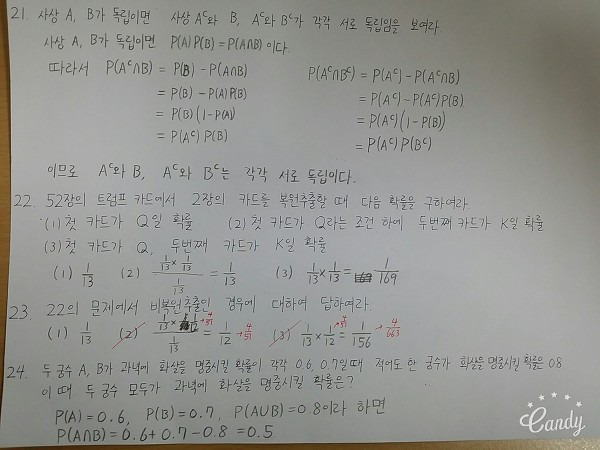 21. 사상 A, B가 독립이면 사상 Aᶜ와 B, Aᶜ와 Bᶜ가 각각 서로 독립임을 보여라
사상 A, B가 독립이면 P(A)P(B) = P(A∩B) 이다.
따라서 P(Aᶜ∩B) = P(B) - P(A∩B)
= P(B) - P(A)P(B)
= P(B)(1-P(A))
= P(Aᶜ)P(B)
P(Aᶜ∩Bᶜ) = P(Aᶜ) - P(Aᶜ∩B)
= P(Aᶜ) - P(Aᶜ)P(B)
= P(Aᶜ)(1-P(B))
= P(Aᶜ)P(Bᶜ)
이므로 Aᶜ와 B, Aᶜ와 Bᶜ는 각각 서로 독립이다.
22. 52장의 트럼프 카드에서 2장의 카드를 복원추출할 때 다음 확률을 구하여라
(1) 첫 카드가 Q일 확률 (2) 첫 카드가 Q라는 조건 하에 두번째 카드가 K일 확률
(3) 첫 카드가 Q, 두번째 카드가 K일 확률
(1) 1/13 (2) (1/13 × 1/13)/(1/13) = 1/13 (3) 1/13 × 1/13 = 1/169
23. 22의 문제에서 비복원추출인 경우에 대하여 답하여라.
(1) 1/13 (2) (1/13 × 1/12 → 4/51)/(1/13) = 1/12 → 4/51 (3) 1/13 × 1/12 → 4/51 = 1/156 → 4/663
24. 두 궁수 A, B가 과녁에 화살을 명중시킬 확률이 각각 0.6, 0.7일때 적어도 한 궁수가 화살을 명중시킬 확률은 0.8
이 때 두 궁수 모두가 과녁에 화살을 명중시킬 확률은?
P(A) = 0.6, P(B) = 0.7, P(A∪B) = 0.8이라 하면
P(A∩B) = 0.6 + 0.7 - 0.8 = 0.5
Candy